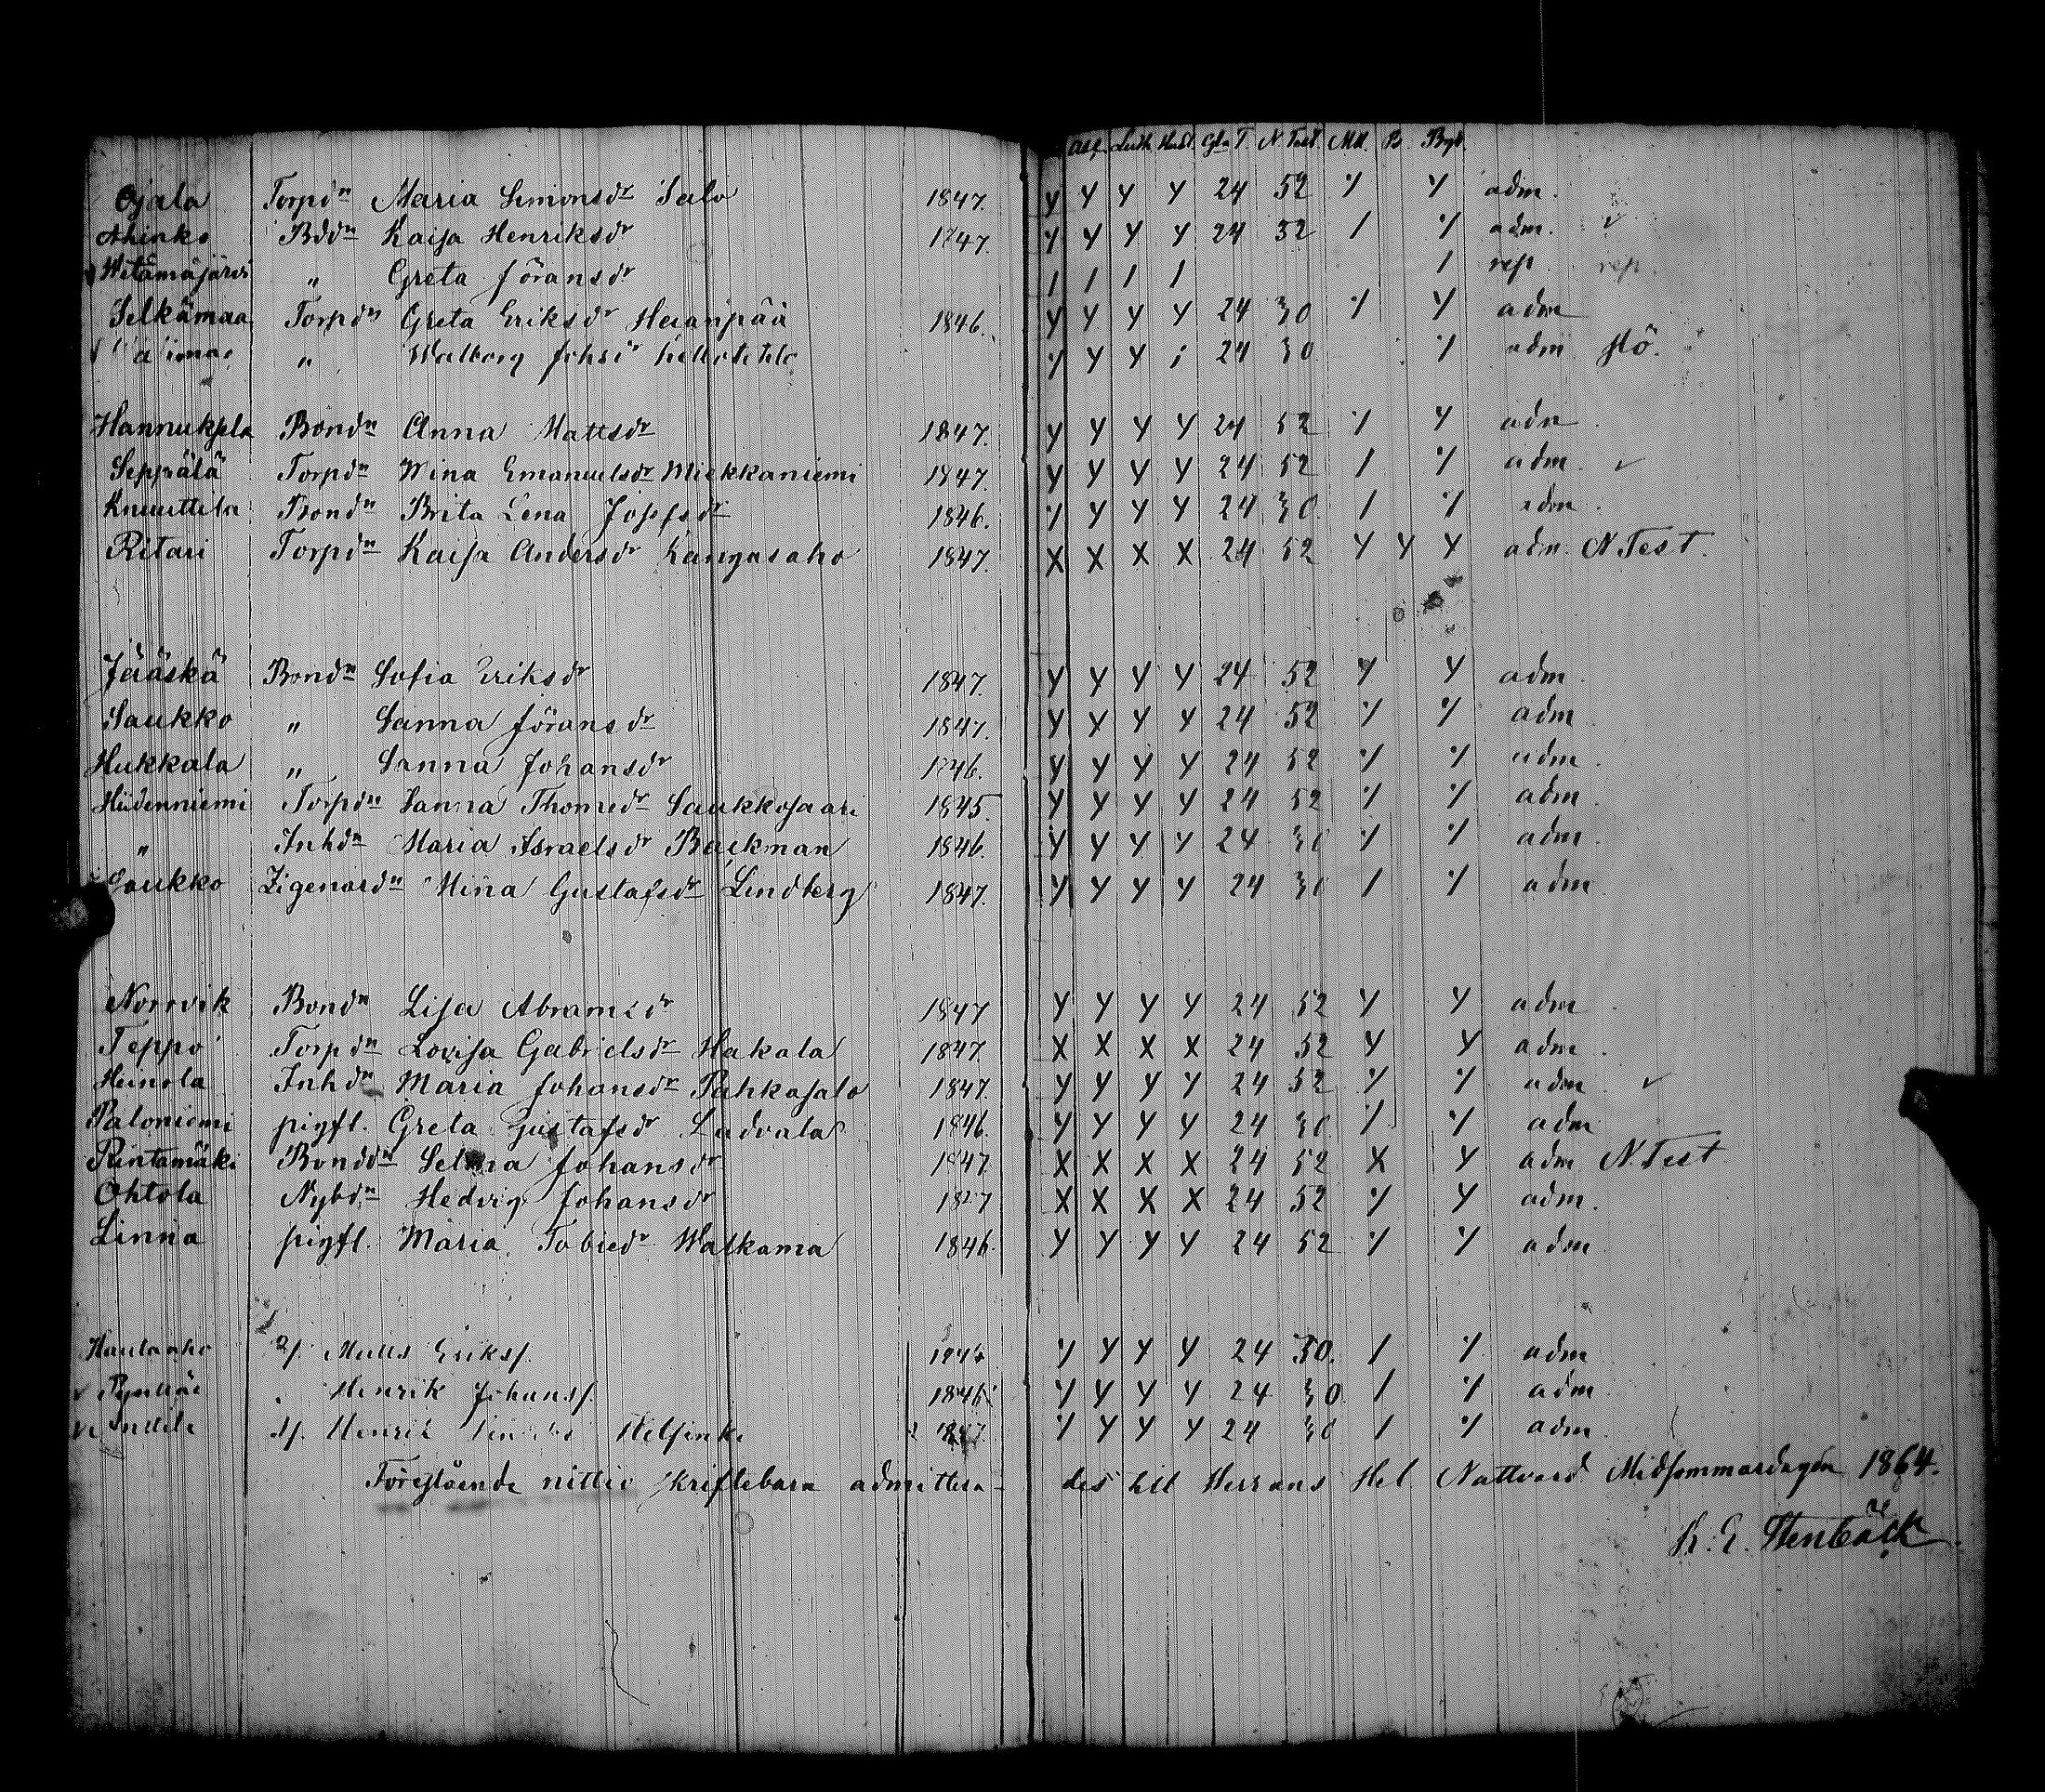 Abf Luth Hust Gla T. N Test. Mkl B. Begr.
Ojala Torpdn Maria Simonsdr Salo 1847. Y Y Y Y 24 52 % Y adm.
Ahinko Bddn Kaisa Henriksdr 1747. Y Y Y Y 24 52 / % adm.
Wetämäjärvi " Greta Göransdr / / / / / rep. rep.
Selkämaa Torpdn Greta Eriksdr Heranpää 1846. Y Y Y Y 24 30 % Y adm
" Walborg Johsdr % Y Y 24 30 % adm
Hannuksela Bondn Anna Mattsdr 1847. Y Y Y Y 24 52 % Y adm.
Seppälä Torpdn Mina Emanuelsdr Miekkaniemi 1847. Y Y Y Y 24 52 / % adm.
Knuuttila Bondn Brita Lena Josefsdr 1846. % Y Y Y 24 30 / % adm.
Ritari Torpdn Kaisa Andersdr Kangasaho 1847. X X X X 24 52 Y Y Y adm. N. Test.
Jääskä Bondn Sofia Eriksdr 1847. Y Y Y Y 24 52 Y Y adm.
Saukko " Sanna Göransdr 1847. Y Y Y Y 24 52 % % adm
Hukkala " Sanna Johansdr 1746. Y Y Y Y 24 52 % % adm.
Hiidenniemi Torpdn Sanna Thomedr Saukkosaari 1845. Y Y Y Y 24 52 % % adm.
" Inhdn Maria Israelsdr Backman 1846. Y Y Y Y 24 30 % % adm.
Saukko Zigenardn Mina Gustafsdr Lindberg 1847. Y Y Y Y 24 30 / % adm
Norrvik Bondn Lisa Abramsdr 1847 Y Y Y Y 24 52 Y Y adm
Teppo Torpdn Lovisa Gabrielsdr Hakala 1847. X X X X 24 52 Y Y adm.
Heinola Inhdn Maria Johansdr Pahkasalo 1847. Y Y Y Y 24 52 % % adm
Paloniemi pigfl. Greta Gustafsdr Ladvala 1846. Y Y Y Y 24 30 % % adm
Rintamäki Bonddn Selma Johansdr 1847. X X X X 24 52 X Y adm N. Test
Ohtola Nybdn Hedvig Johansdr 1847 X X X X 24 52 % Y adm.
Linna pigfl. Maria Tobiedr Walkama 1846. Y Y Y Y 24 52 % % adm
Hautaaho Matts Eriksf. % Y Y Y 24 30. / % adm
Henrik Johansf. 1846. % Y Y Y 24 30 / % adm
Henrik Helsinki % Y Y Y 24 30 / % adm
Föregående nittio skriftebarn admittera- des till Herrans Hel Nattvard Midsommardagen 1864.
K. E. Stenbäck